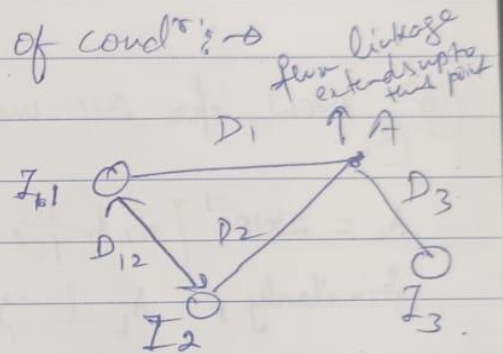 of condr :→
flux linkage
extends upto
that point
D1
A
I1
D3
D12
D2
I2
I3.